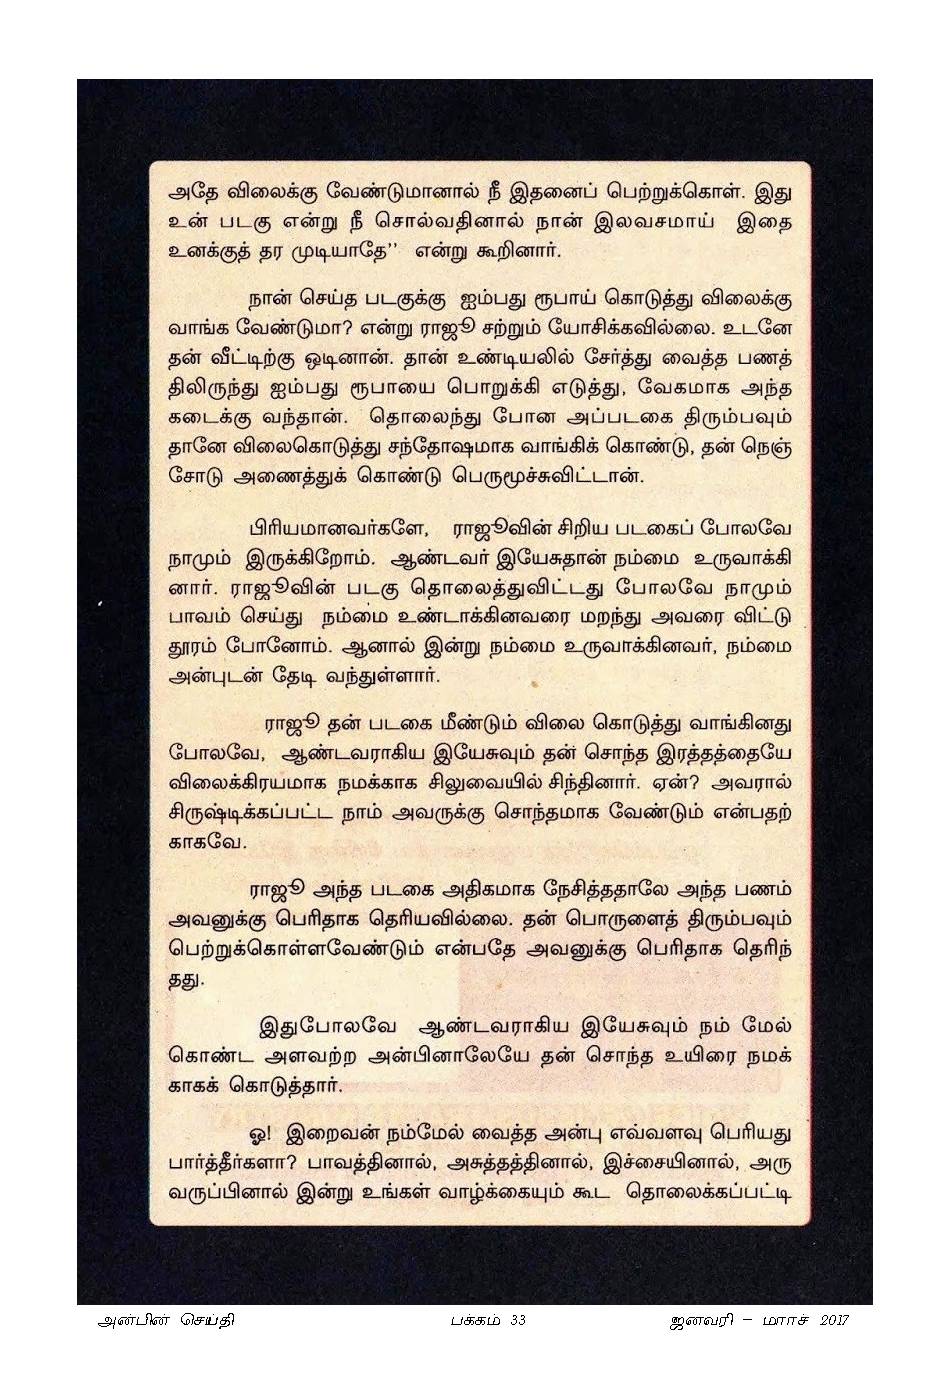 அதே விலைக்கு வேண்டுமானால் நீ இதனைப் பெற்றுக்கொள். இது
உன் படகு என்று நீ சொல்வதினால் நான் இலவசமாய் இதை
உனக்குத் தர முடியாதே’’ என்று கூறினார்.
நான் செய்த படகுக்கு ஐம்பது ரூபாய் கொடுத்து விலைக்கு
வாங்க வேண்டுமா? என்று ராஜூ சற்றும் யோசிக்கவில்லை. உடனே
தன் வீட்டிற்கு ஓடினான். தான் உண்டியலில் சேர்த்து வைத்த பணத்
திலிருந்து ஐம்பது ரூபாயை பொறுக்கி எடுத்து, வேகமாக அந்த
கடைக்கு வந்தான். தொலைந்து போன அப்படகை திரும்பவும்
தானே விலைகொடுத்து சந்தோஷமாக வாங்கிக் கொண்டு, தன் நெஞ்
சோடு அணைத்துக் கொண்டு பெருமூச்சுவிட்டான்.
பிரியமானவர்களே, ராஜூவின் சிறிய படகைப் போலவே
நாமும் இருக்கிறோம். ஆண்டவர் இயேசுதான் நம்மை உருவாக்கி
னார். ராஜூவின் படகு தொலைத்துவிட்டது போலவே நாமும்
பாவம் செய்து நம்மை உண்டாக்கினவரை மறந்து அவரை விட்டு
தூரம் போனோம். ஆனால் இன்று நம்மை உருவாக்கினவர், நம்மை
அன்புடன் தேடி வந்துள்ளார்.
ராஜூ தன் படகை மீண்டும் விலை கொடுத்து வாங்கினது
போலவே, ஆண்டவராகிய இயேசுவும் தன் சொந்த இரத்தத்தையே
விலைக்கிரயமாக நமக்காக சிலுவையில் சிந்தினார். ஏன்? அவரால்
சிருஷ்டிக்கப்பட்ட நாம் அவருக்கு சொந்தமாக வேண்டும் என்பதற்
காகவே.
ராஜூ அந்த படகை அதிகமாக நேசித்ததாலே அந்த பணம்
அவனுக்கு பெரிதாக தெரியவில்லை. தன் பொருளைத் திரும்பவும்
பெற்றுக்கொள்ளவேண்டும் என்பதே அவனுக்கு பெரிதாக தெரிந்
தது.
இதுபோலவே ஆண்டவராகிய இயேசுவும் நம் மேல்
கொண்ட அளவற்ற அன்பினாலேயே தன் சொந்த உயிரை நமக்
காகக் கொடுத்தார்.
ஓ! இறைவன் நம்மேல் வைத்த அன்பு எவ்வளவு பெரியது
பார்த்தீர்களா? பாவத்தினால், அசுத்தத்தினால், இச்சையினால், அரு
வருப்பினால் இன்று உங்கள் வாழ்க்கையும் கூட தொலைக்கப்பட்டி
அன்பின் செய்தி பக்கம் 33 ஜனவரி – மார்ச் 2017